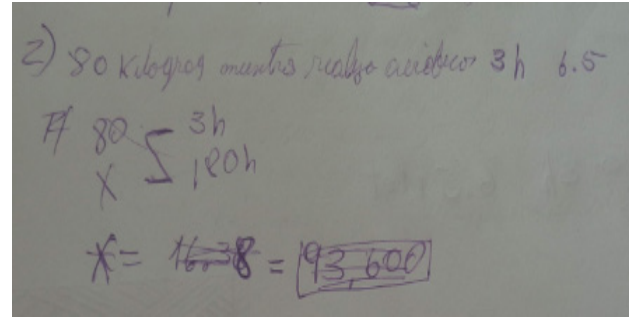 2) 80 Kilogros mientras realizo aeróbicos 3h 6.5
80 3h
X 180h
X = = 93,600